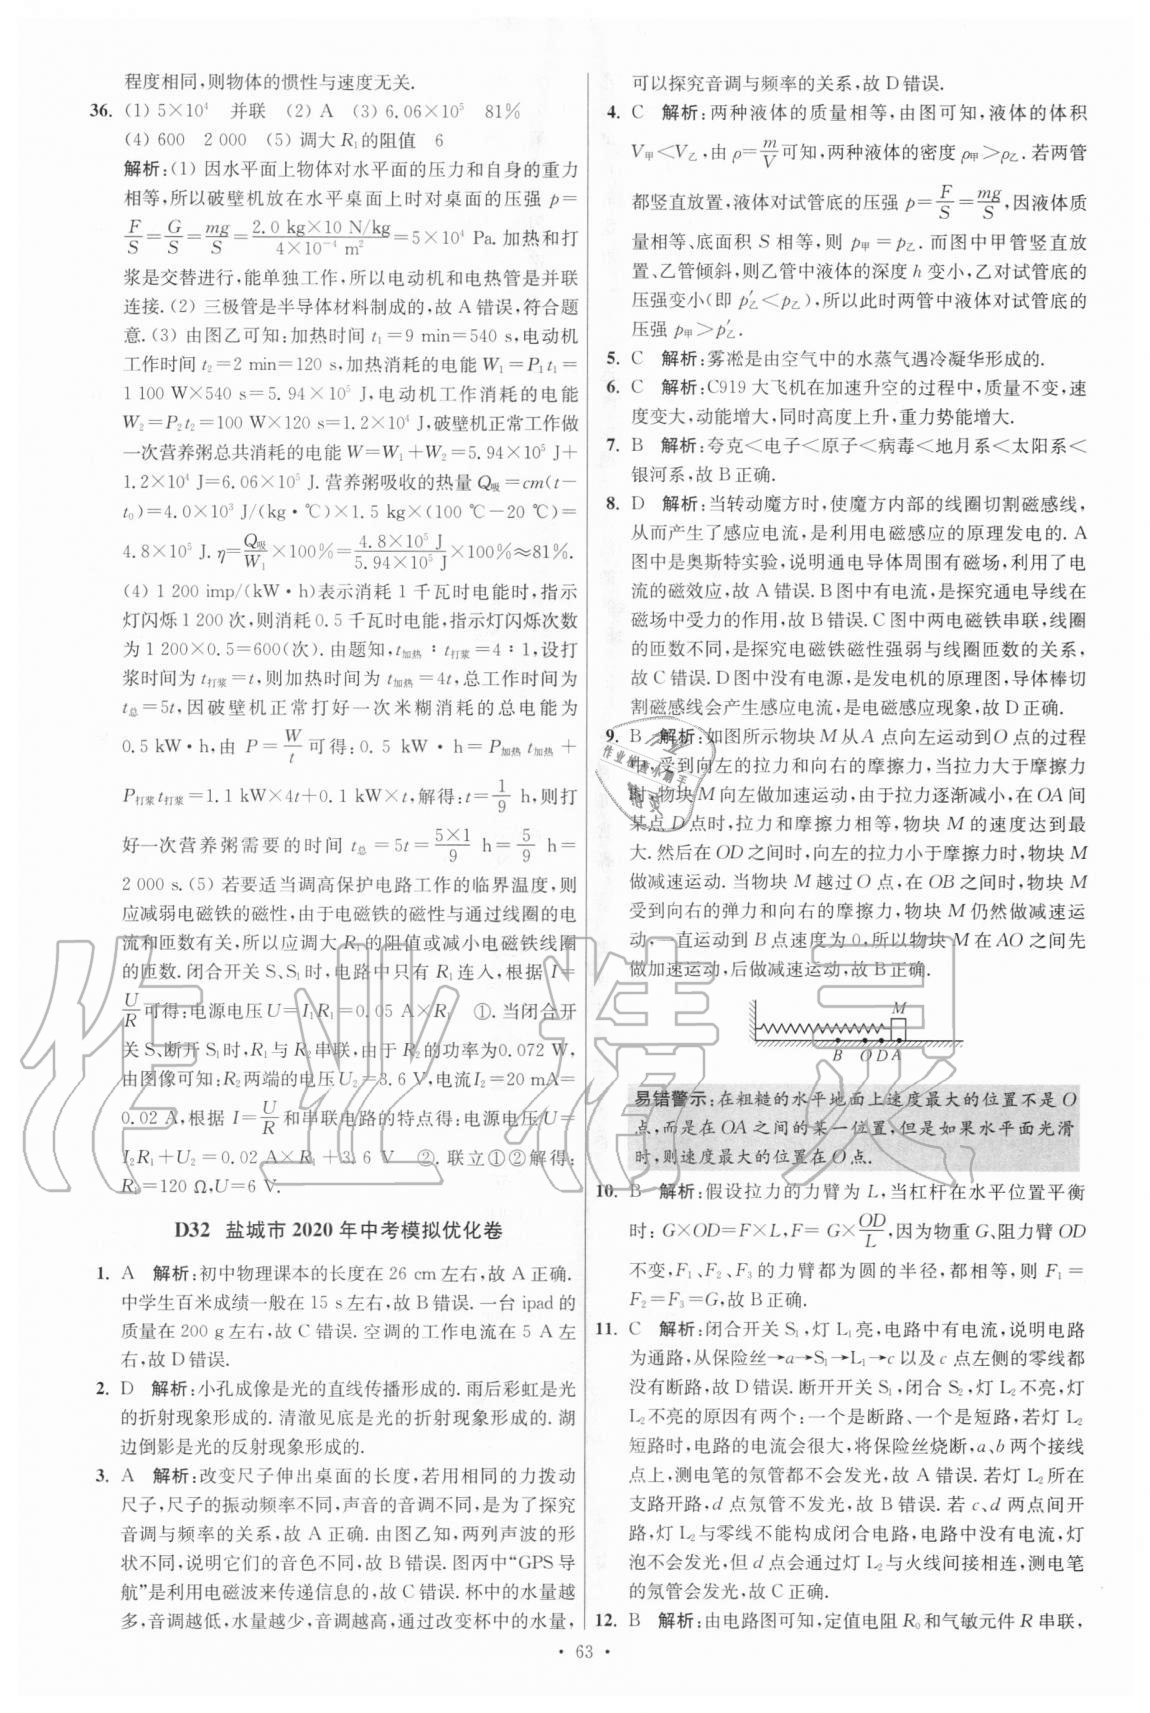 程度相同,则物体的惯性与速度无关.
36. (1) 5×10⁴ 并联 (2) A (3) 6.06×10⁵ 81%
(4) 600 2 000 (5) 调大R₁的阻值 6
解析:(1) 因水平面上物体对水平面的压力和自身的重力
相等,所以破壁机放在水平桌面上时对桌面的压强 p=
F/S=G/S=mg/S=2.0 kg×10 N/kg/4×10⁻⁴ m²=5×10⁴ Pa.加热和打
浆是交替进行,能单独工作,所以电动机和电热管是并联
连接.(2) 三极管是半导体材料制成的,故A错误,符合题
意.(3) 由图乙可知:加热时间 t₁=9 min=540 s,电动机
工作时间 t₂=2 min=120 s,加热消耗的电能 W₁=P₁t₁=
1 100 W×540 s=5.94×10⁵ J,电动机工作消耗的电能
W₂=P₂t₂=100 W×120 s=1.2×10⁴ J,破壁机正常工作做
一次营养粥总共消耗的电能 W=W₁+W₂=5.94×10⁵ J+
1.2×10⁴ J=6.06×10⁵ J.营养粥吸收的热量 Q吸=cm(t-
t₀)=4.0×10³ J/(kg·℃)×1.5 kg×(100 ℃-20 ℃)=
4.8×10⁵ J.η=Q吸/W₁×100%=4.8×10⁵ J/5.94×10⁵ J×100%≈81%.
(4) 1 200 imp/(kW·h)表示消耗 1 千瓦时电能时,指示
灯闪烁1 200次,则消耗0.5千瓦时电能,指示灯闪烁次数
为1 200×0.5=600(次).由题知,t加热∶t打浆=4∶1,设打
浆时间为t打浆=t,则加热时间为t加热=4t,总工作时间为
t总=5t,因破壁机正常打好一次米糊消耗的总电能为
0.5 kW·h,由 P=W/t可得:0.5 kW·h=P加热 t加热+
P打浆t打浆=1.1 kW×4t+0.1 kW×t,解得:t=1/9 h,则打
好一次营养粥需要的时间 t总=5t=5×1/9 h=5/9 h=
2 000 s.(5) 若要适当调高保护电路工作的临界温度,则
应减弱电磁铁的磁性,由于电磁铁的磁性与通过线圈的电
流和匝数有关,所以应调大R₁的阻值或减小电磁铁线圈
的匝数.闭合开关S、S₁时,电路中只有R₁连入,根据I=
U/R可得:电源电压U=I₁R₁=0.05 A×R₁ ①.当闭合开
关S、断开S₁时,R₁与R₂串联,由于R₂的功率为0.072 W,
由图像可知:R₂两端的电压U₂=3.6 V,电流I₂=20 mA=
0.02 A,根据 I=U/R和串联电路的特点得:电源电压U=
I₂R₁+U₂=0.02 A×R₁+3.6 V ②.联立①②解得:
R₁=120 Ω,U=6 V.
D32 盐城市2020年中考模拟优化卷
1. A 解析:初中物理课本的长度在26 cm左右,故A正确.
中学生百米成绩一般在15 s左右,故B错误.一台ipad的
质量在200 g左右,故C错误.空调的工作电流在5 A左
右,故D错误.
2. D 解析:小孔成像是光的直线传播形成的.雨后彩虹是光
的折射现象形成的.清澈见底是光的折射现象形成的.湖
边倒影是光的反射现象形成的.
3. A 解析:改变尺子伸出桌面的长度,若用相同的力拨动
尺子,尺子的振动频率不同,声音的音调不同,是为了探究
音调与频率的关系,故A正确.由图乙知,两列声波的形
状不同,说明它们的音色不同,故B错误.图丙中“GPS导
航”是利用电磁波来传递信息的,故C错误.杯中的水量越
多,音调越低,水量越少,音调越高,通过改变杯中的水量,
可以探究音调与频率的关系,故D错误.
4. C 解析:两种液体的质量相等,由图可知,液体的体积
V甲<V乙,由ρ=m/V可知,两种液体的密度ρ甲>ρ乙.若两管
都竖直放置,液体对试管底的压强 p=F/S=mg/S,因液体质
量相等、底面积S相等,则 p甲=p乙.而图中甲管竖直放
置、乙管倾斜,则乙管中液体的深度h变小,乙对试管底的
压强变小(即p′乙<p乙),所以此时两管中液体对试管底的
压强p甲>p′乙.
5. C 解析:雾凇是由空气中的水蒸气遇冷凝华形成的.
6. C 解析:C919大飞机在加速升空的过程中,质量不变,速
度变大,动能增大,同时高度上升,重力势能增大.
7. B 解析:夸克<电子<原子<病毒<地月系<太阳系<
银河系,故B正确.
8. D 解析:当转动魔方时,使魔方内部的线圈切割磁感线,
从而产生了感应电流,是利用电磁感应的原理发电的.A
图中是奥斯特实验,说明通电导体周围有磁场,利用了电
流的磁效应,故A错误.B图中有电流,是探究通电导线在
磁场中受力的作用,故B错误.C图中两电磁铁串联,线圈
的匝数不同,是探究电磁铁磁性强弱与线圈匝数的关系,
故C错误.D图中没有电源,是发电机的原理图,导体棒切
割磁感线会产生感应电流,是电磁感应现象,故D正确.
9. B 解析:如图所示物块M从A点向左运动到O点的过程
中,受到向左的拉力和向右的摩擦力,当拉力大于摩擦力
时,物块M向左做加速运动,由于拉力逐渐减小,在OA间
某点D点时,拉力和摩擦力相等,物块M的速度达到最
大.然后在OD之间时,向左的拉力小于摩擦力时,物块M
做减速运动.当物块M越过O点,在OB之间时,物块M
受到向右的弹力和向右的摩擦力,物块M仍然做减速运
动,一直运动到B点速度为0,所以物块M在AO之间先
做加速运动,后做减速运动,故B正确.
M
B O D A
易错警示:在粗糙的水平地面上速度最大的位置不是O
点,而是在OA之间的某一位置,但是如果水平面光滑
时,则速度最大的位置在O点.
10. B 解析:假设拉力的力臂为L,当杠杆在水平位置平衡
时:G×OD=F×L,F=G×OD/L,因为物重G、阻力臂OD
不变,F₁、F₂、F₃的力臂都为圆的半径,都相等,则 F₁=
F₂=F₃=G,故B正确.
11. C 解析:闭合开关S₁,灯L₁亮,电路中有电流,说明电路
为通路,从保险丝→a→S₁→L₁→c以及c点左侧的零线都
没有断路,故D错误.断开开关S₁,闭合S₂,灯L₂不亮,灯
L₂不亮的原因有两个:一个是断路、一个是短路,若灯L₂
短路时,电路的电流会很大,将保险丝烧断,a、b两个接线
点上,测电笔的氖管都不会发光,故A错误.若灯L₂所在
支路开路,d点氖管不发光,故B错误.若c、d两点间开
路,灯L₂与零线不能构成闭合电路,电路中没有电流,灯
泡不会发光,但d点会通过灯L₂与火线间接相连,测电笔
的氖管会发光,故C正确.
12. B 解析:由电路图可知,定值电阻R₀和气敏元件R串联,
· 63 ·
作业精灵